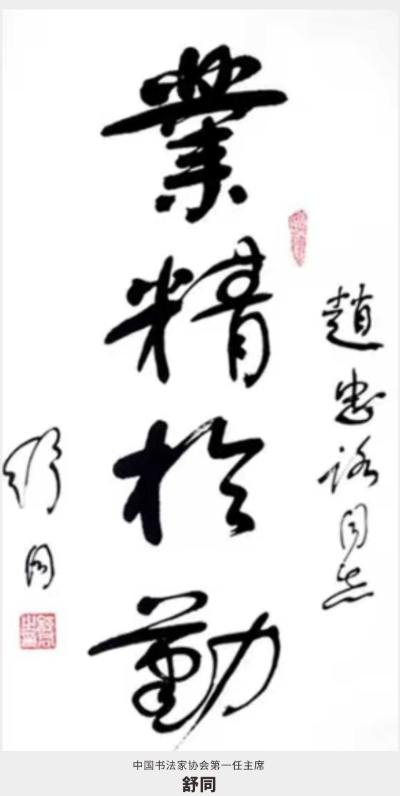 趙忠路同志
業精於勤
舒同
中国书法家协会第一任主席
舒同